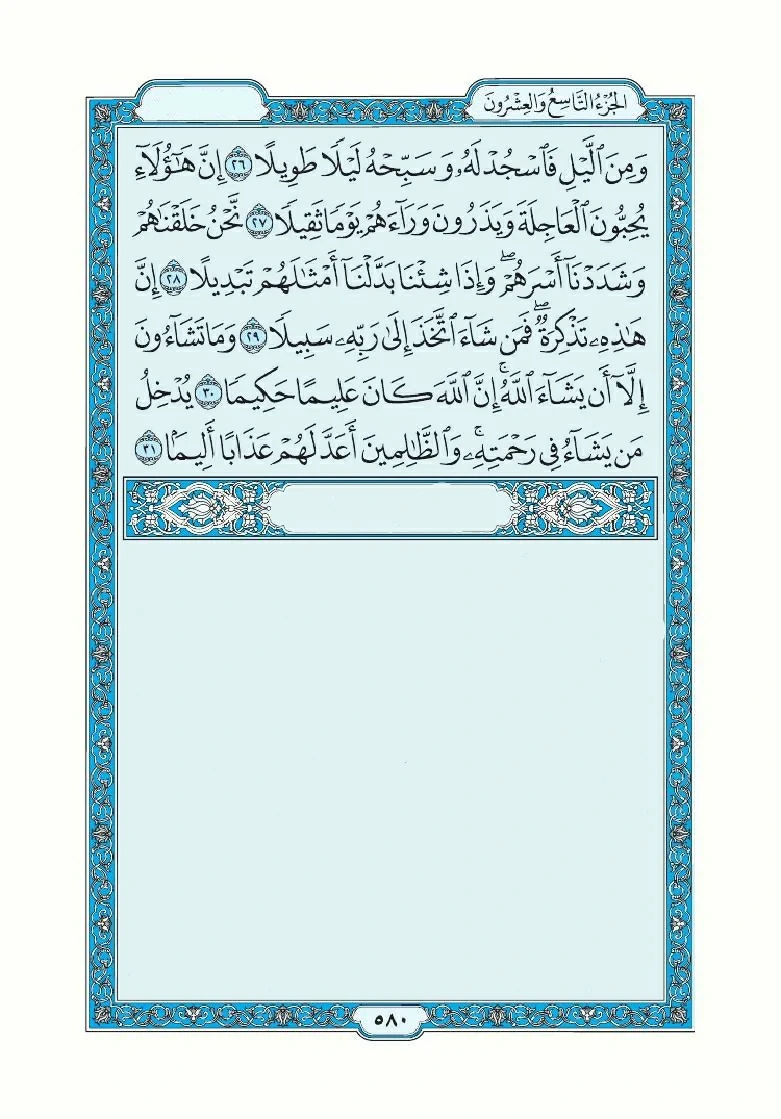 الجُزْءُ التَّاسِعُ وَالعِشْرُونَ
وَمِنَ ٱلَّيۡلِ فَٱسۡجُدۡ لَهُۥ وَسَبِّحۡهُ لَيۡلٗا طَوِيلًا ٢٦ إِنَّ هَٰٓؤُلَآءِ
يُحِبُّونَ ٱلۡعَاجِلَةَ وَيَذَرُونَ وَرَآءَهُمۡ يَوۡمٗا ثَقِيلٗا ٢٧ نَّحۡنُ خَلَقۡنَٰهُمۡ
وَشَدَدۡنَآ أَسۡرَهُمۡۖ وَإِذَا شِئۡنَا بَدَّلۡنَآ أَمۡثَٰلَهُمۡ تَبۡدِيلًا ٢٨ إِنَّ
هَٰذِهِۦ تَذۡكِرَةٞۖ فَمَن شَآءَ ٱتَّخَذَ إِلَىٰ رَبِّهِۦ سَبِيلٗا ٢٩ وَمَا تَشَآءُونَ
إِلَّآ أَن يَشَآءَ ٱللَّهُۚ إِنَّ ٱللَّهَ كَانَ عَلِيمًا حَكِيمٗا ٣٠ يُدۡخِلُ
مَن يَشَآءُ فِي رَحۡمَتِهِۦۚ وَٱلظَّٰلِمِينَ أَعَدَّ لَهُمۡ عَذَابًا أَلِيمَۢا ٣١
٥٨٠